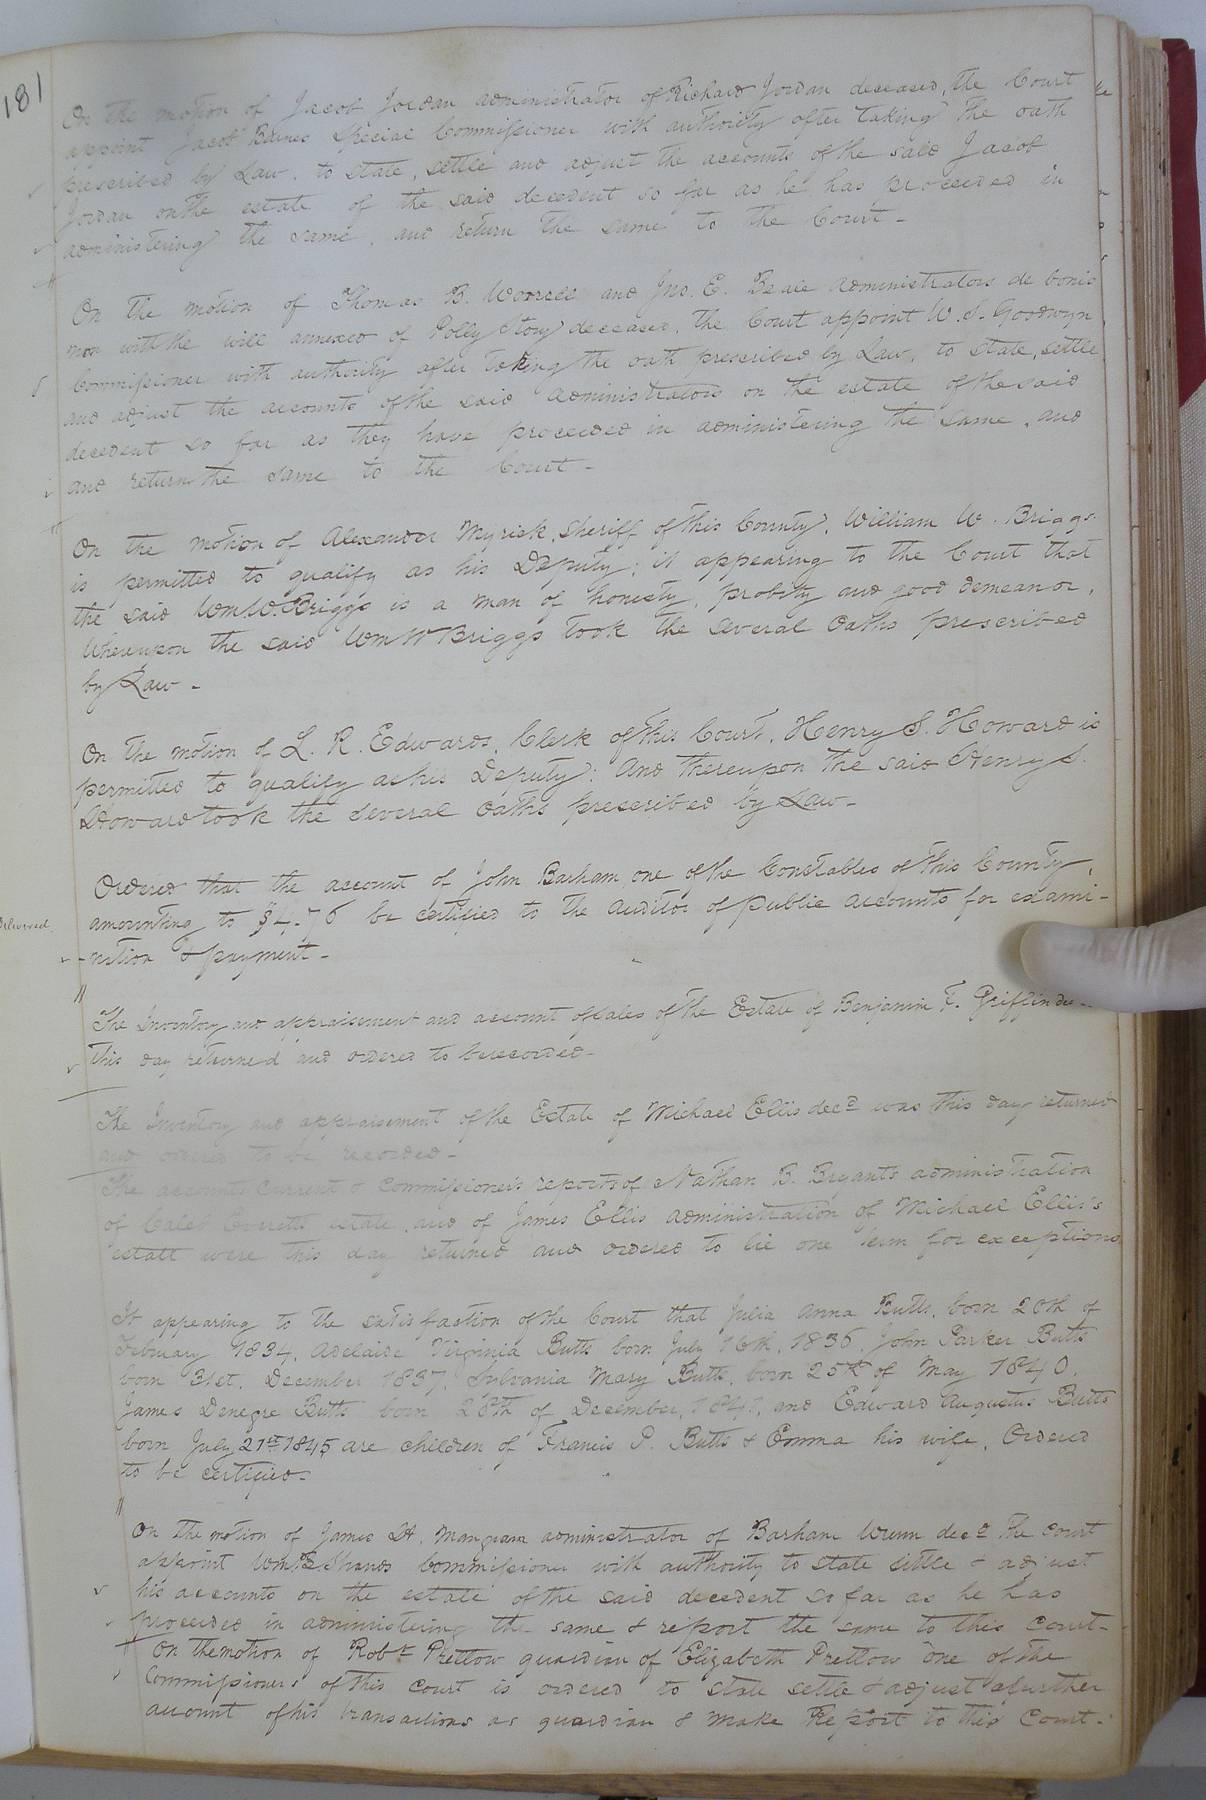 181
On the motion of Jacob Jordan administrator of Richard Jordan deceased, the Court
appoint Jacob Barnes Special Commissioner with authority after taking the oath
prescribed by Law, to state, settle and adjust the accounts of the said Jacob
Jordan on the estate of the said decedent so far as he has proceeded in
administering the same, and return the same to the Court -
On the motion of Thomas B. Worrell and Jno. E. Beale administrators de bonis
non with the will annexed of Polly Story deceased, the Court appoint W. S. Goodwyn
Commissioner with authority after taking the oath prescribed by Law, to state, settle
and adjust the accounts of the said administrators on the estate of the said
decedent so far as they have proceeded in administering the same, and
and return the same to the Court -
On the motion of Alexander Myrick, Sheriff of this County, William W. Briggs
is permitted to qualify as his Deputy; it appearing to the Court that
the said Wm. W. Briggs is a man of honesty, probity and good demeanor,
Whereupon the said Wm W Briggs took the several oaths prescribed
by Law -
On the motion of L. R. Edwards, Clerk of this Court, Henry S. Howard is
permitted to qualify as his Deputy; And thereupon the said Henry S.
Howard took the several oaths prescribed by Law -
Ordered that the account of John Barham one of the Constables of this County,
amounting to $4.76 be certified to the auditor of public accounts for exami-
Delivered
nation & payment -
The Inventory and appraisement and account of sales of the Estate of Benjamin F. Griffin dec
this day returned and ordered to be recorded -
The Inventory and appraisement of the Estate of Michael Ellis decd was this day returned
and ordered to be recorded -
The accounts current & commissioner's reports of Nathan B. Bryant's administration
of Caleb Everetts estate, and of James Ellis administration of Michael Ellis's
estate were this day returned and ordered to lie one term for exceptions
It appearing to the satisfaction of the Court that Julia Anna Butts, born 20th of
February 1834, Adelaide Virginia Butts born July 16th, 1836, John Parker Butts
born 31st. December 1837, Sylvania Mary Butts, born 25th of May 1840,
James Denegre Butts born 28th of December, and Edward Augustus Butts
born July 21st 1845 are children of Francis P. Butts & Emma his wife, Ordered
to be certified -
On the motion of James H. Mangum administrator of Barham Wrenn decd the court
appoint Wm. E. Shands Commissioner with authority to state settle & adjust
his accounts on the estate of the said decedent so far as he has
proceeded in administering the same & report the same to this Court -
On the motion of Robt Pretlow guardian of Elizabeth Pretlow one of the
Commissioners of this Court is ordered to state settle & adjust a further
account of his transactions as guardian & make Report to this Court -